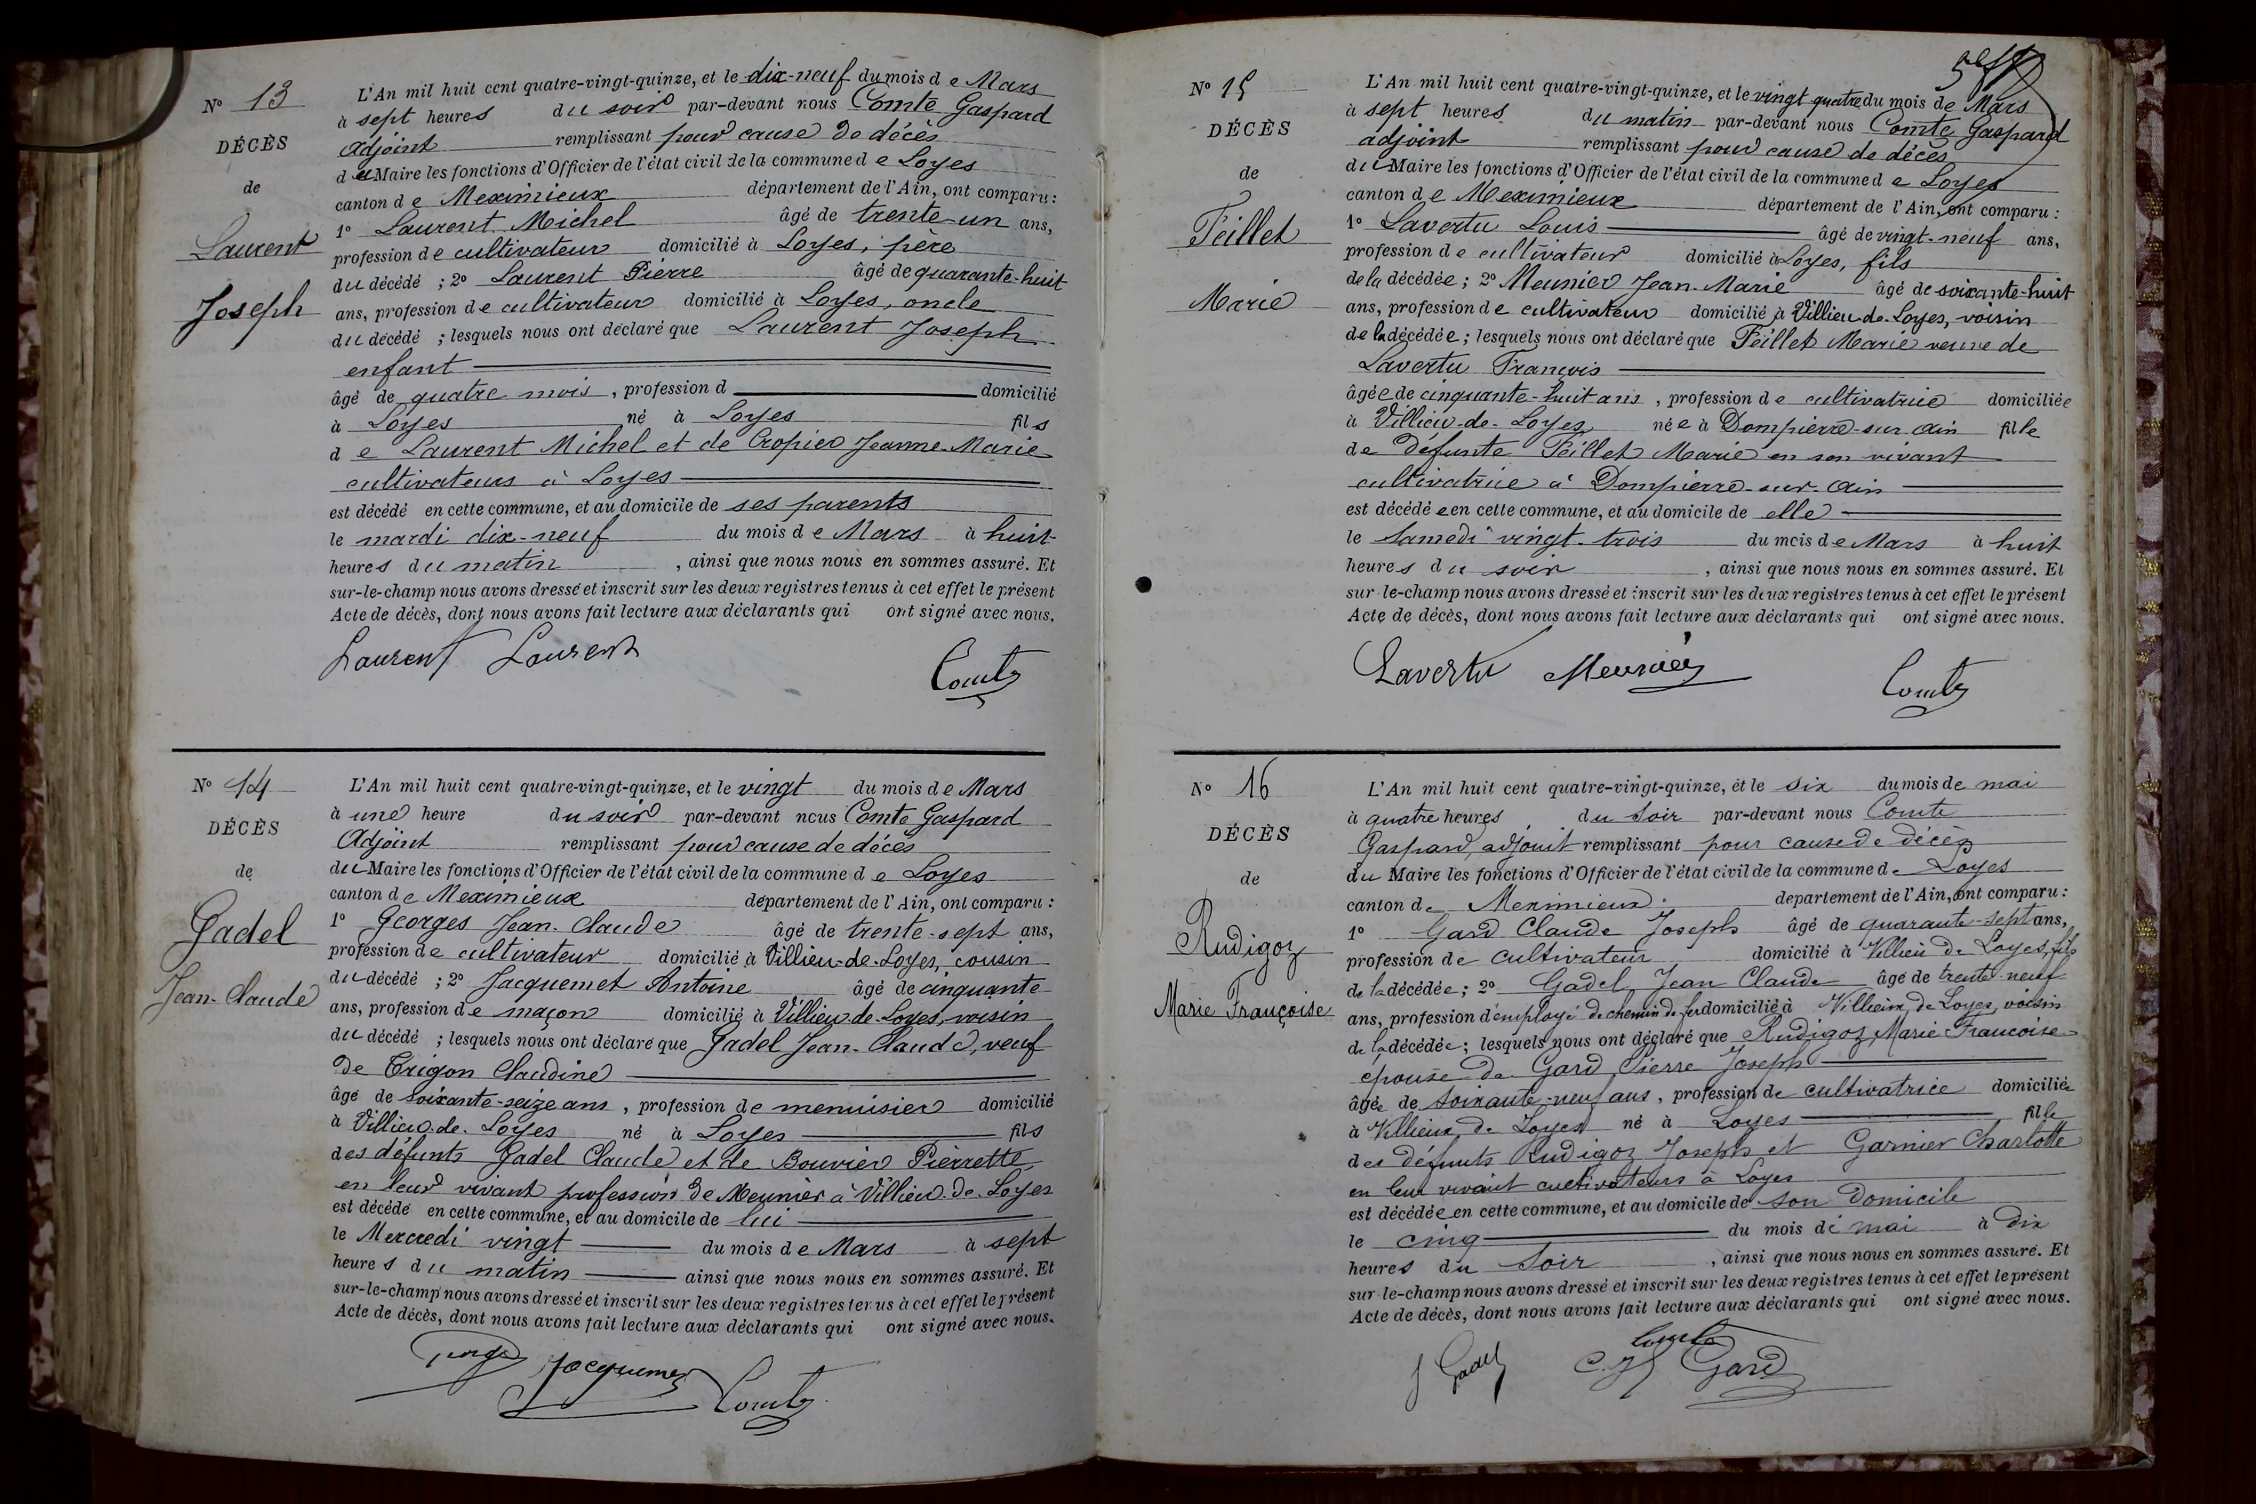 N° 13
DÉCÈS
de
Laurent
Joseph
L'An mil huit cent quatre-vingt-quinze, et le dix-neuf du mois de Mars
à sept heures du soir par-devant nous Comte Gaspard
Adjoint remplissant pour cause de décès
du Maire les fonctions d'Officier de l'état civil de la commune de Loyes
canton de Meximieux département de l'Ain, ont comparu :
1° Laurent Michel âgé de trente-un ans,
profession de cultivateur domicilié à Loyes, père
du décédé ; 2° Laurent Pierre âgé de quarante-huit
ans, profession de cultivateur domicilié à Loyes, oncle
du décédé ; lesquels nous ont déclaré que Laurent Joseph
enfant
âgé de quatre mois, profession d domicilié
à Loyes né à Loyes fils
de Laurent Michel et de Cropier Jeanne-Marie
cultivateurs à Loyes
est décédé en cette commune, et au domicile de ses parents
le mardi dix-neuf du mois de Mars à huit
heures du matin, ainsi que nous nous en sommes assuré. Et
sur-le-champ nous avons dressé et inscrit sur les deux registres tenus à cet effet le présent
Acte de décès, dont nous avons fait lecture aux déclarants qui ont signé avec nous.
Laurent Laurent
Comte
N° 14
DÉCÈS
de
Gadel
Jean-Claude
L'An mil huit cent quatre-vingt-quinze, et le vingt du mois de Mars
à une heure du soir par-devant nous Comte Gaspard
Adjoint remplissant pour cause de décès
du Maire les fonctions d'Officier de l'état civil de la commune de Loyes
canton de Meximieux département de l'Ain, ont comparu :
1° Georges Jean-Claude âgé de trente-sept ans,
profession de cultivateur domicilié à Villieu-de-Loyes, cousin
du décédé ; 2° Jacquemet Antoine âgé de cinquante
ans, profession de maçon domicilié à Villieu-de-Loyes, voisin
du décédé ; lesquels nous ont déclaré que Gadel Jean-Claude, veuf
de Trigon Claudine
âgé de soixante-seize ans, profession de menuisier domicilié
à Villieu-de-Loyes né à Loyes fils
des défunts Gadel Claude et de Bouvier Pierrette,
en leur vivant profession de Meunier à Villieu-de-Loyes
est décédé en cette commune, et au domicile de lui
le Mercredi vingt du mois de Mars à sept
heures du matin ainsi que nous nous en sommes assuré. Et
sur-le-champ nous avons dressé et inscrit sur les deux registres tenus à cet effet le présent
Acte de décès, dont nous avons fait lecture aux déclarants qui ont signé avec nous.
Jacquemet Comte
N° 15
DÉCÈS
de
Feillet
Marie
L'An mil huit cent quatre-vingt-quinze, et le vingt quatre du mois de Mars
à sept heures du matin par-devant nous Comte Gaspard
adjoint remplissant pour cause de décès
du Maire les fonctions d'Officier de l'état civil de la commune de Loyes
canton de Meximieux département de l'Ain, ont comparu :
1° Lavertu Louis âgé de vingt-neuf ans,
profession de cultivateur domicilié à Loyes, fils
de la décédée ; 2° Meunier Jean-Marie âgé de soixante-huit
ans, profession de cultivateur domicilié à Villieu-de-Loyes, voisin
de la décédée ; lesquels nous ont déclaré que Feillet Marie veuve de
Lavertu François
âgée de cinquante-huit ans, profession de cultivatrice domiciliée
à Villieu-de-Loyes née à Dompierre-sur-Ain fille
de défunte Feillet Marie en son vivant
cultivatrice à Dompierre-sur-Ain
est décédée en cette commune, et au domicile de elle
le Samedi vingt-trois du mois de Mars à huit
heures du soir, ainsi que nous nous en sommes assuré. Et
sur-le-champ nous avons dressé et inscrit sur les deux registres tenus à cet effet le présent
Acte de décès, dont nous avons fait lecture aux déclarants qui ont signé avec nous.
Lavertu Meunier
Comte
N° 16
DÉCÈS
de
Rudigoz
Marie Françoise
L'An mil huit cent quatre-vingt-quinze, et le six du mois de mai
à quatre heures du soir par-devant nous Comte
Gaspard, adjoint remplissant pour cause de décès
du Maire les fonctions d'Officier de l'état civil de la commune de Loyes
canton de Meximieux département de l'Ain, ont comparu :
1° Gard Claude Joseph âgé de quarante-sept ans,
profession de cultivateur domicilié à Villieu de Loyes, fils
de la décédée ; 2° Gadel Jean Claude âgé de trente-neuf
ans, profession d'employé de chemin de fer domicilié à Villieux de Loyes, voisin
de la décédée ; lesquels nous ont déclaré que Rudigoz Marie Francoise
épouse de Gard Pierre Joseph
âgée de soixante-neuf ans, profession de cultivatrice domiciliée
à Villieux de Loyes né à Loyes fille
des défunts Rudigoz Joseph et Garnier Charlotte
en leur vivant cultivateurs à Loyes
est décédée en cette commune, et au domicile de son domicile
le cinq du mois de mai à dix
heures du soir, ainsi que nous nous en sommes assuré. Et
sur-le-champ nous avons dressé et inscrit sur les deux registres tenus à cet effet le présent
Acte de décès, dont nous avons fait lecture aux déclarants qui ont signé avec nous.
J Gadel Comte C. J Gard